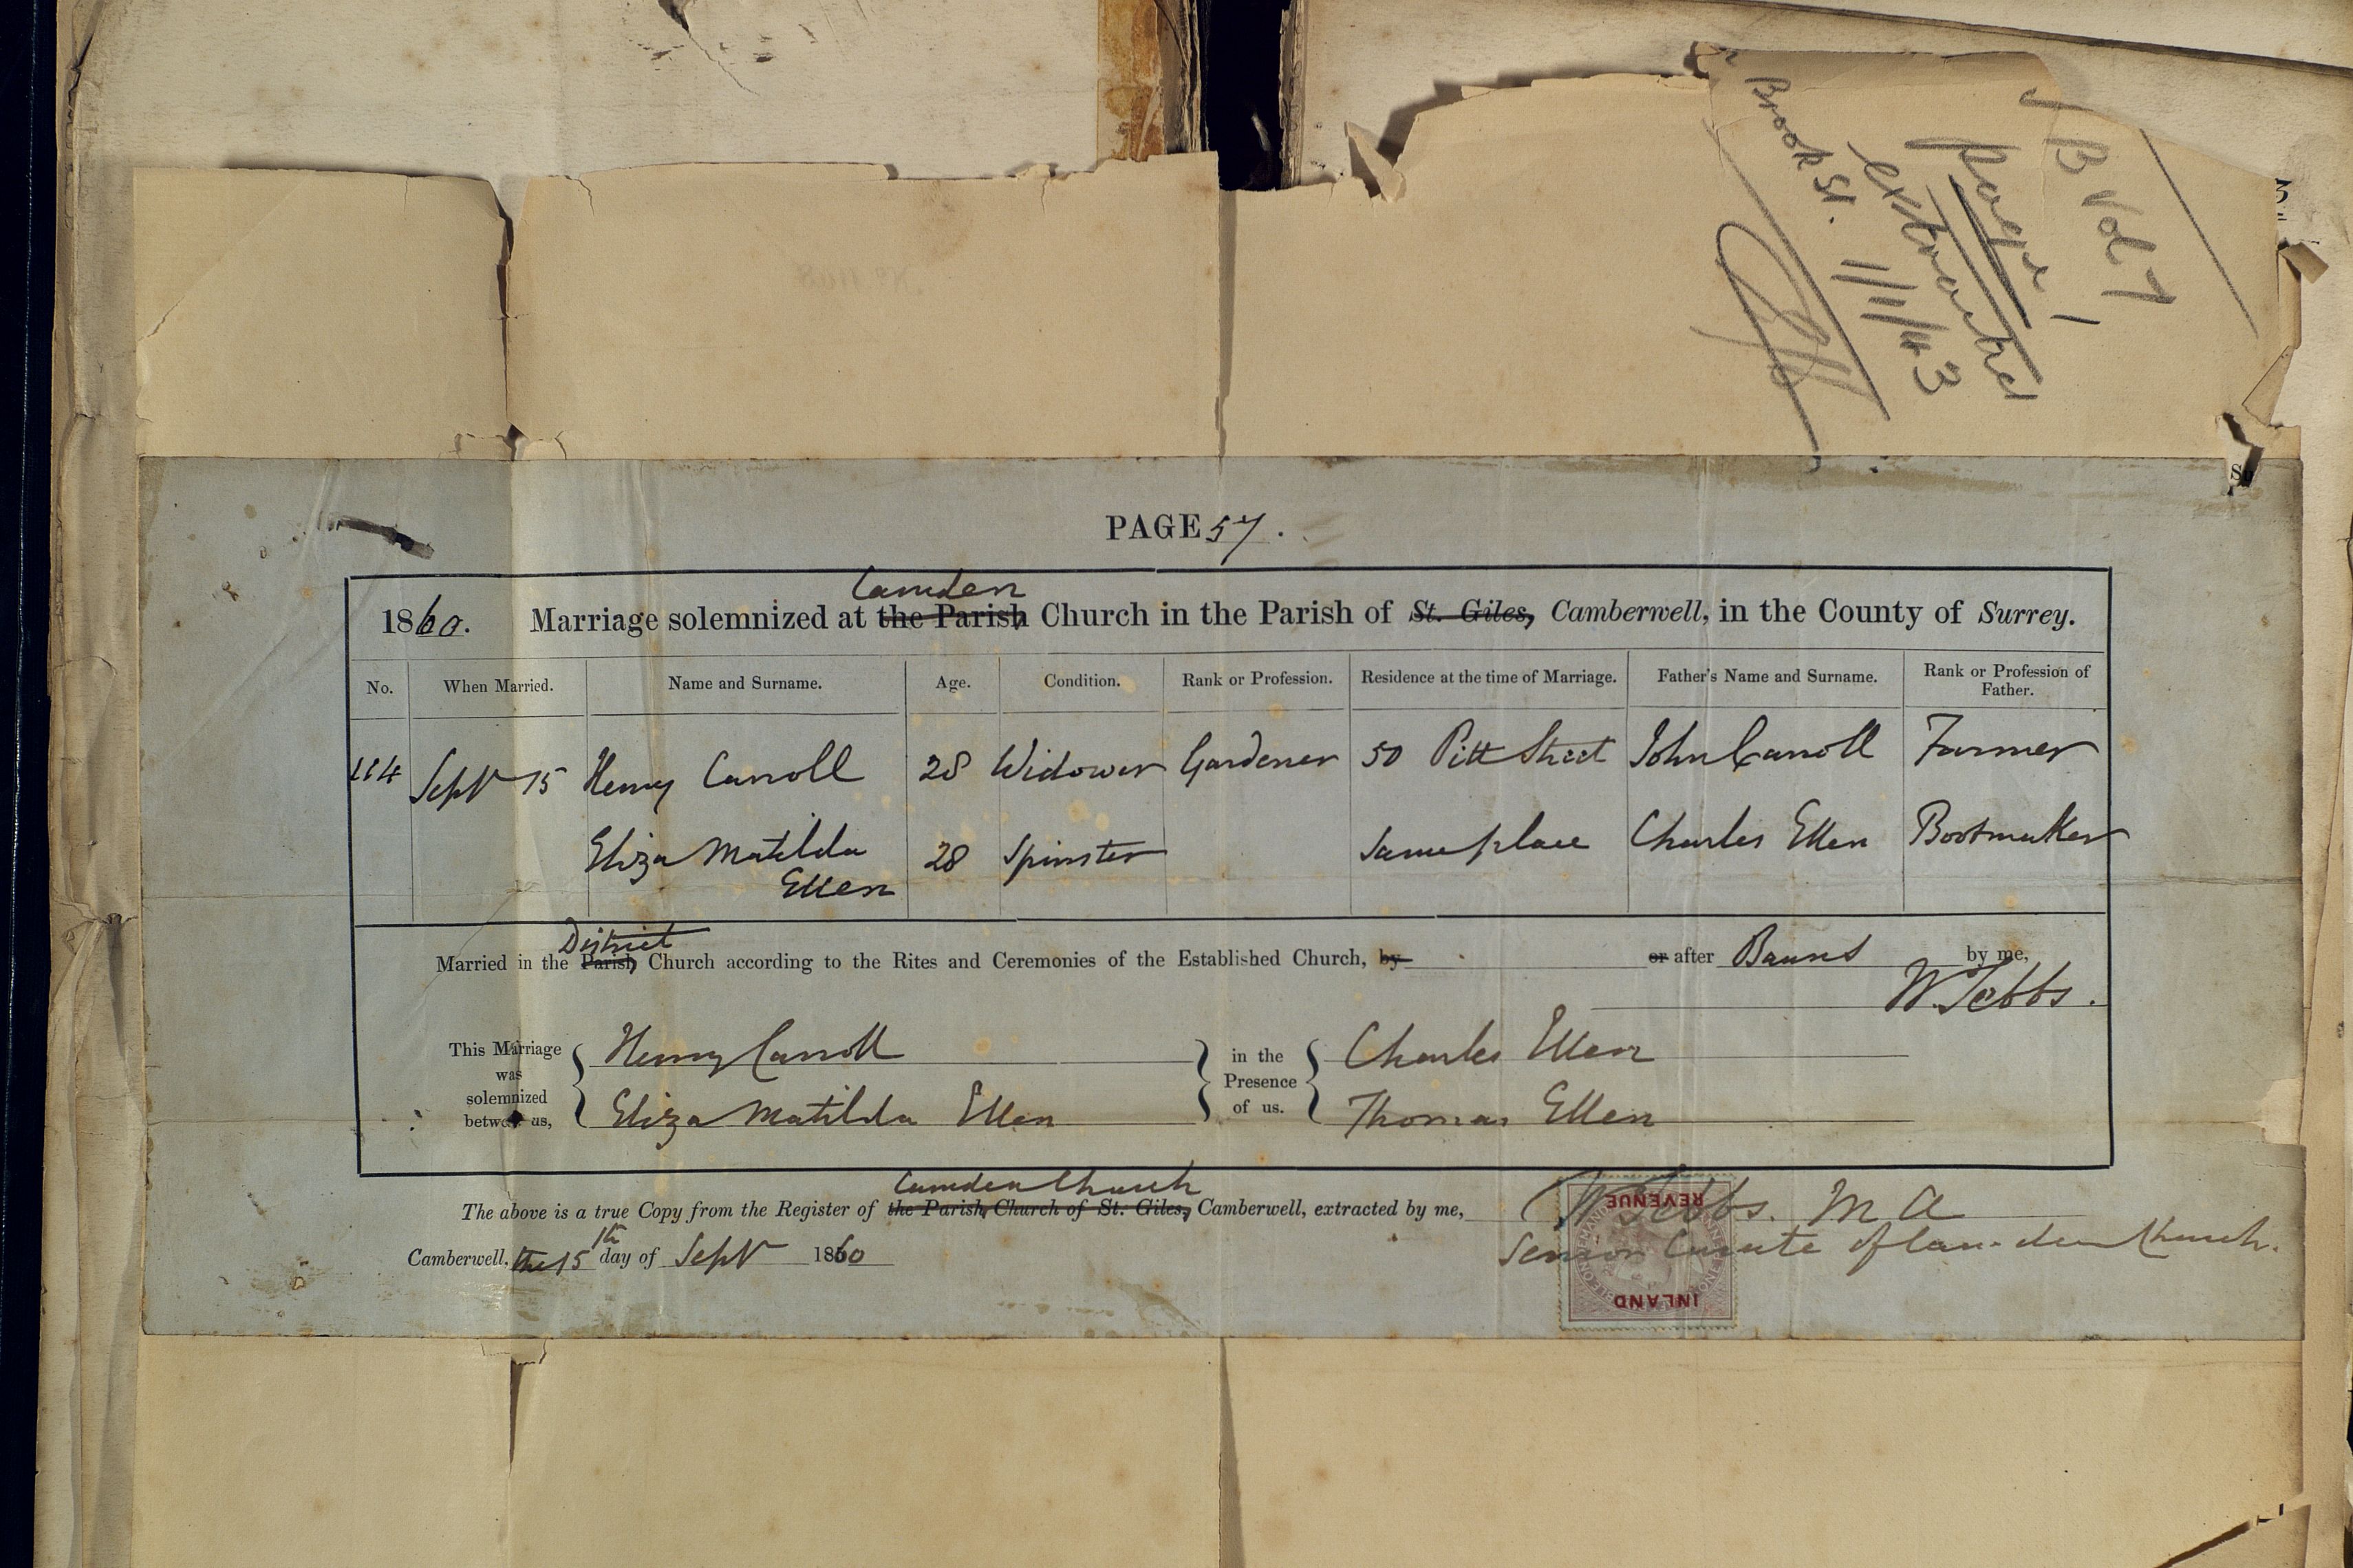 B Vol 7
page 1
extracted
1/1/43
Brook St.
PAGE 57.
Camden
1860. Marriage solemnized at the Parish Church in the Parish of St. Giles, Camberwell, in the County of Surrey.
No. When Married. Name and Surname. Age. Condition. Rank or Profession. Residence at the time of Marriage. Father's Name and Surname. Rank or Profession of Father.
114 Sept 15 Henry Carroll 28 Widower Gardener 50 Pitt Street John Carroll Farmer
Eliza Matilda Ellen 28 Spinster Same place Charles Ellen Bootmaker
District
Married in the Parish Church according to the Rites and Ceremonies of the Established Church, by or after Banns by me,
W. Tebbs.
This Marriage was solemnized between us,
Henry Carroll
Eliza Matilda Ellen
in the Presence of us.
Charles Ellen
Thomas Ellen
Camden Church
The above is a true Copy from the Register of the Parish Church of St. Giles, Camberwell, extracted by me, W Tebbs. M A
Senior Curate of Camden Church.
Camberwell, the 15th day of Sept 1860
INLAND
REVENUE